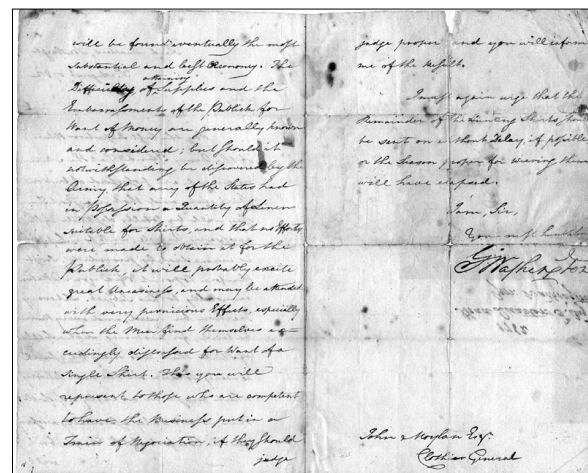 will be found eventually the most
substantial and best Œconomy. The
attaining
Difficulty of Supplies and the
Embarrassments of the Publick for
Want of Money are generally known
and considered; but should it
notwithstanding be discovered by the
Army, that any of the States had
in Possession a Quantity of Linen
suitable for Shirts, and that no Efforts
were made to obtain it for the
Publick, it will probably excite
great Uneasiness, and may be attended
with very pernicious Effects, especially
when the Men find themselves ex=
ceedingly distressed for Want of a
single Shirt. This you will
represent to those who are competent
to have the Business put in a
Train of Negociation, if they should
judge
judge proper and you will inform
me of the Result.
I must again urge that the
Remainder of the Hunting Shirts, should
be sent on without Delay, if possible
or the Season proper for wearing them
will have elapsed.
I am, Sir,
Your most humble
G Washington
John Moylan Esqr.
Clothier General